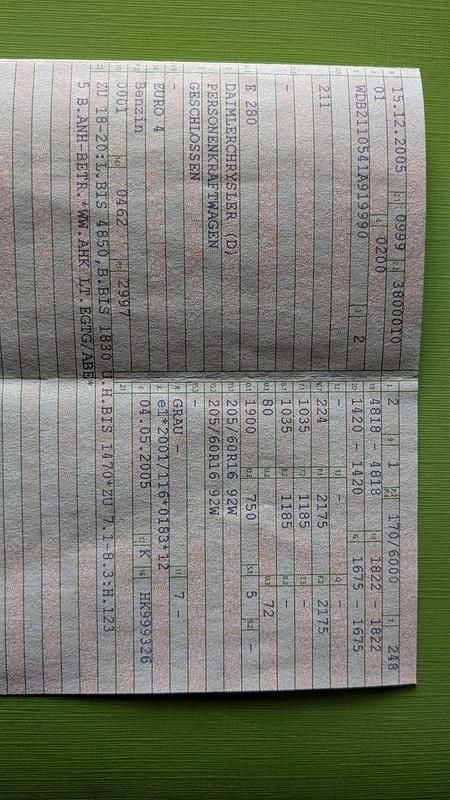 15.12.2005 0999 3800010
01 0200
WDB2110541A919990 2
211
-
E 280
DAIMLERCHRYSLER (D)
PERSONENKRAFTWAGEN
GESCHLOSSEN
-
EURO 4
Benzin
0001 0462 2997
2 1 170/6000 248
4818 - 4818 1822 - 1822
1420 - 1420 1675 - 1675
- - -
224 2175 2175
1035 1185 -
1035 1185 -
80 72
1900 750 5 -
205/60R16 92W
205/60R16 92W
-
GRAU - 7 -
e1*2001/116*0183*12
04.05.2005 K HK999326
ZU 18-20:L.BIS 4850,B.BIS 1830 U.H.BIS 1470*ZU 7.1-8.3:H.123
5 B.ANH-BETR.*WW.AHK LT.EGTG/ABE*